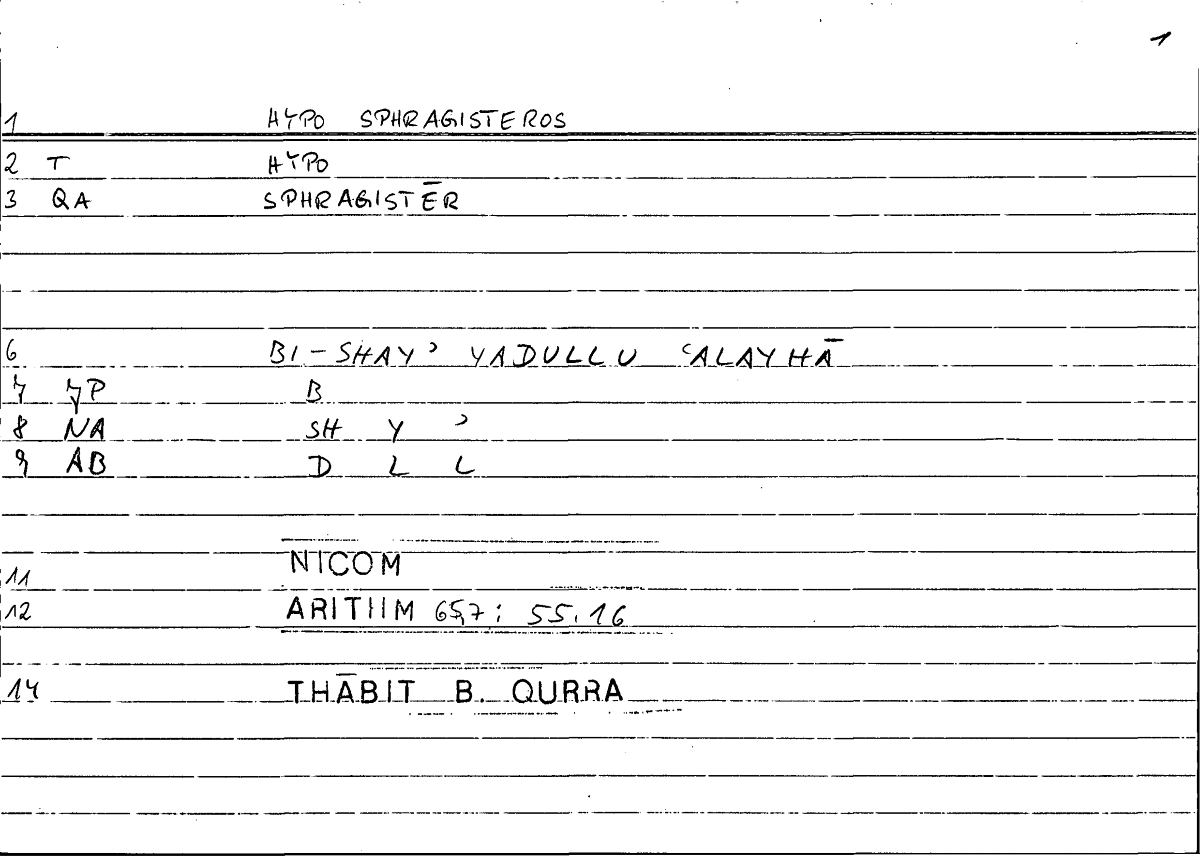 1
1 HYPO SPHRAGISTEROS
2 T HYPO
3 QA SPHRAGISTĒR
6 BI-SHAYʾ YADULLU ʿALAYHĀ
7 YP B
8 NA SH Y ʾ
9 AB D L L
11 NICOM
12 ARITHM 65,7: 55.16
14 THĀBIT B. QURRA